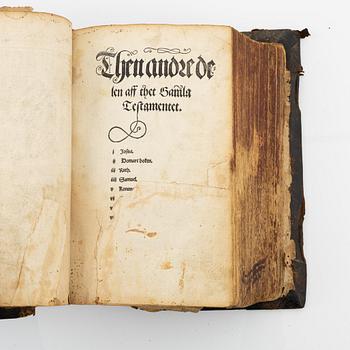 Then andre de
len aff thet Gamla
Testamentet.
i Josua.
ij Domare boken.
iij Ruth.
iiij Samuel.
v
vi
vij